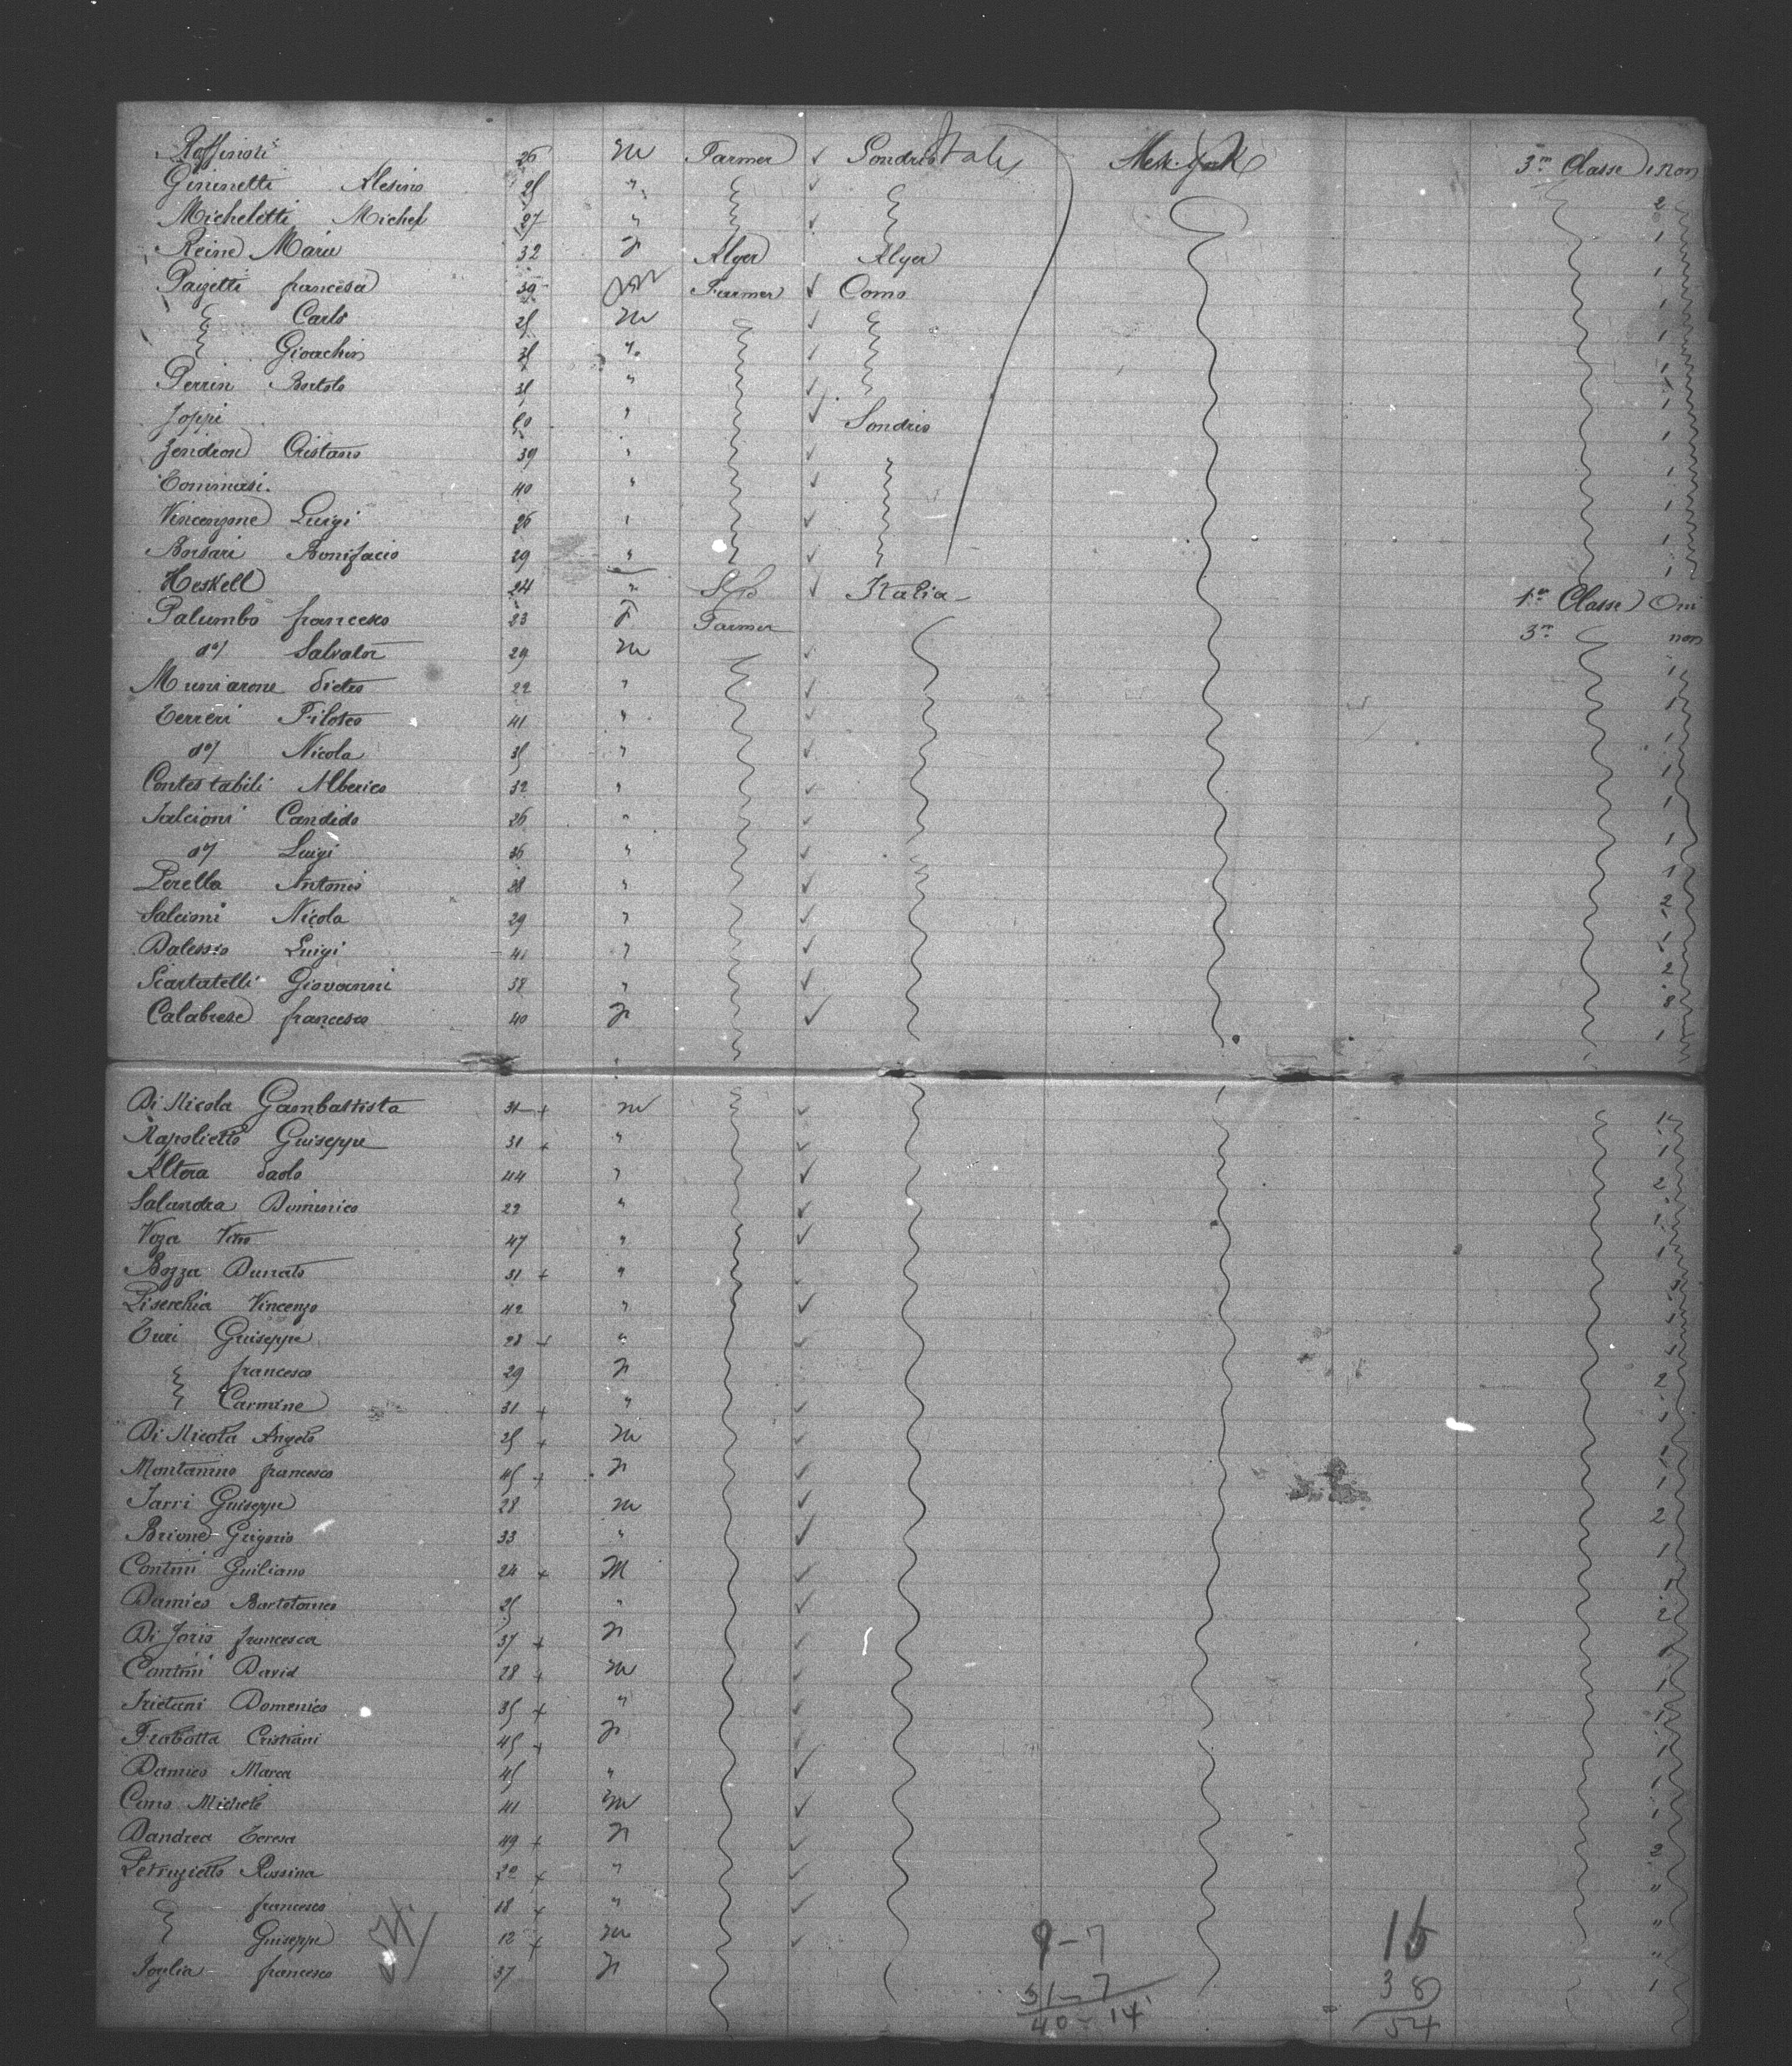 Raffinoti 26 m Farmer ✓ Sondrio Italy New-York 3me Classe 1 non
Gininetti Alesino 25 " ✓ 2
Micheletti Michel 27 " ✓ 1
Reine Marie 32 F Alger Alger 1
Paizetti francesca 39 M Farmer ✓ Como 1
Carlo 25 m ✓ 1
Gioachin 35 " ✓ 1
Perrin Bortolo 38 " ✓ 1
Joppi 60 " ✓ Sondrio 1
Zendron Cristano 39 " ✓ 1
Tommasi 40 " ✓ 1
Vincenzone Luigi 26 " ✓ 1
Borsari Bonifacio 29 " ✓ 1
Heskell 24 " ✓ Italia 1re Classe Oui
Palumbo francesco 23 F Farmer 3me non
do/ Salvator 29 m ✓ 1
Pietro 22 " ✓ 1
Terreri Filoteo 41 " ✓ 1
do/ Nicola 35 " ✓ 1
Contestabili Alberico 32 " ✓ 1
Salcioni Candido 26 " ✓
do/ Luigi 36 " ✓ 1
Perella Antonio 28 " ✓ 1
Salcioni Nicola 29 " ✓ 2
Dalessio Luigi 41 " ✓ 1
Scartatelli Giovanni 38 " ✓ 2
Calabrese francesco 40 F ✓ 1
Di Nicola Gambattista 31 + m ✓ 1
Napolietto Guiseppe 31 + " ✓ 1
Altera Paolo 44 " ✓ 2
Salandra Dominico 22 " ✓ 1
Voza Vito 47 " ✓ 1
Bozza Dunato 31 + " ✓
Piserchia Vincenzo 42 " ✓ 1
Turi Guiseppe 28 + " ✓ 1
francesco 29 F 2
Carmine 31 + " ✓ 1
Di Nicola Angelo 25 + m ✓ 1
Montanino francesco 45 + F ✓ 1
Iarri Guiseppe 28 m ✓ 2
Brione Grigorio 33 " ✓ 1
Contini Guiliano 24 + M ✓ 1
Damico Bartolomeo 25 " ✓ 2
Di Jorio francesca 37 + F ✓ 1
Contini David 28 + m ✓ 1
Domenico 35 + " ✓ 1
Frabotta Cristiani 45 + F ✓ 1
Damico Marea 45 " ✓ 1
Cimo Michele 41 m ✓ 1
Dandrea Teresa 49 + F ✓ 2
Petruzietto Rossina 22 + " ✓ "
francesco 18 + " ✓ "
Guiseppe 12 + m ✓ "
Foglia francesco 37 F 1
9-7 16
31-7 38
40-14 54